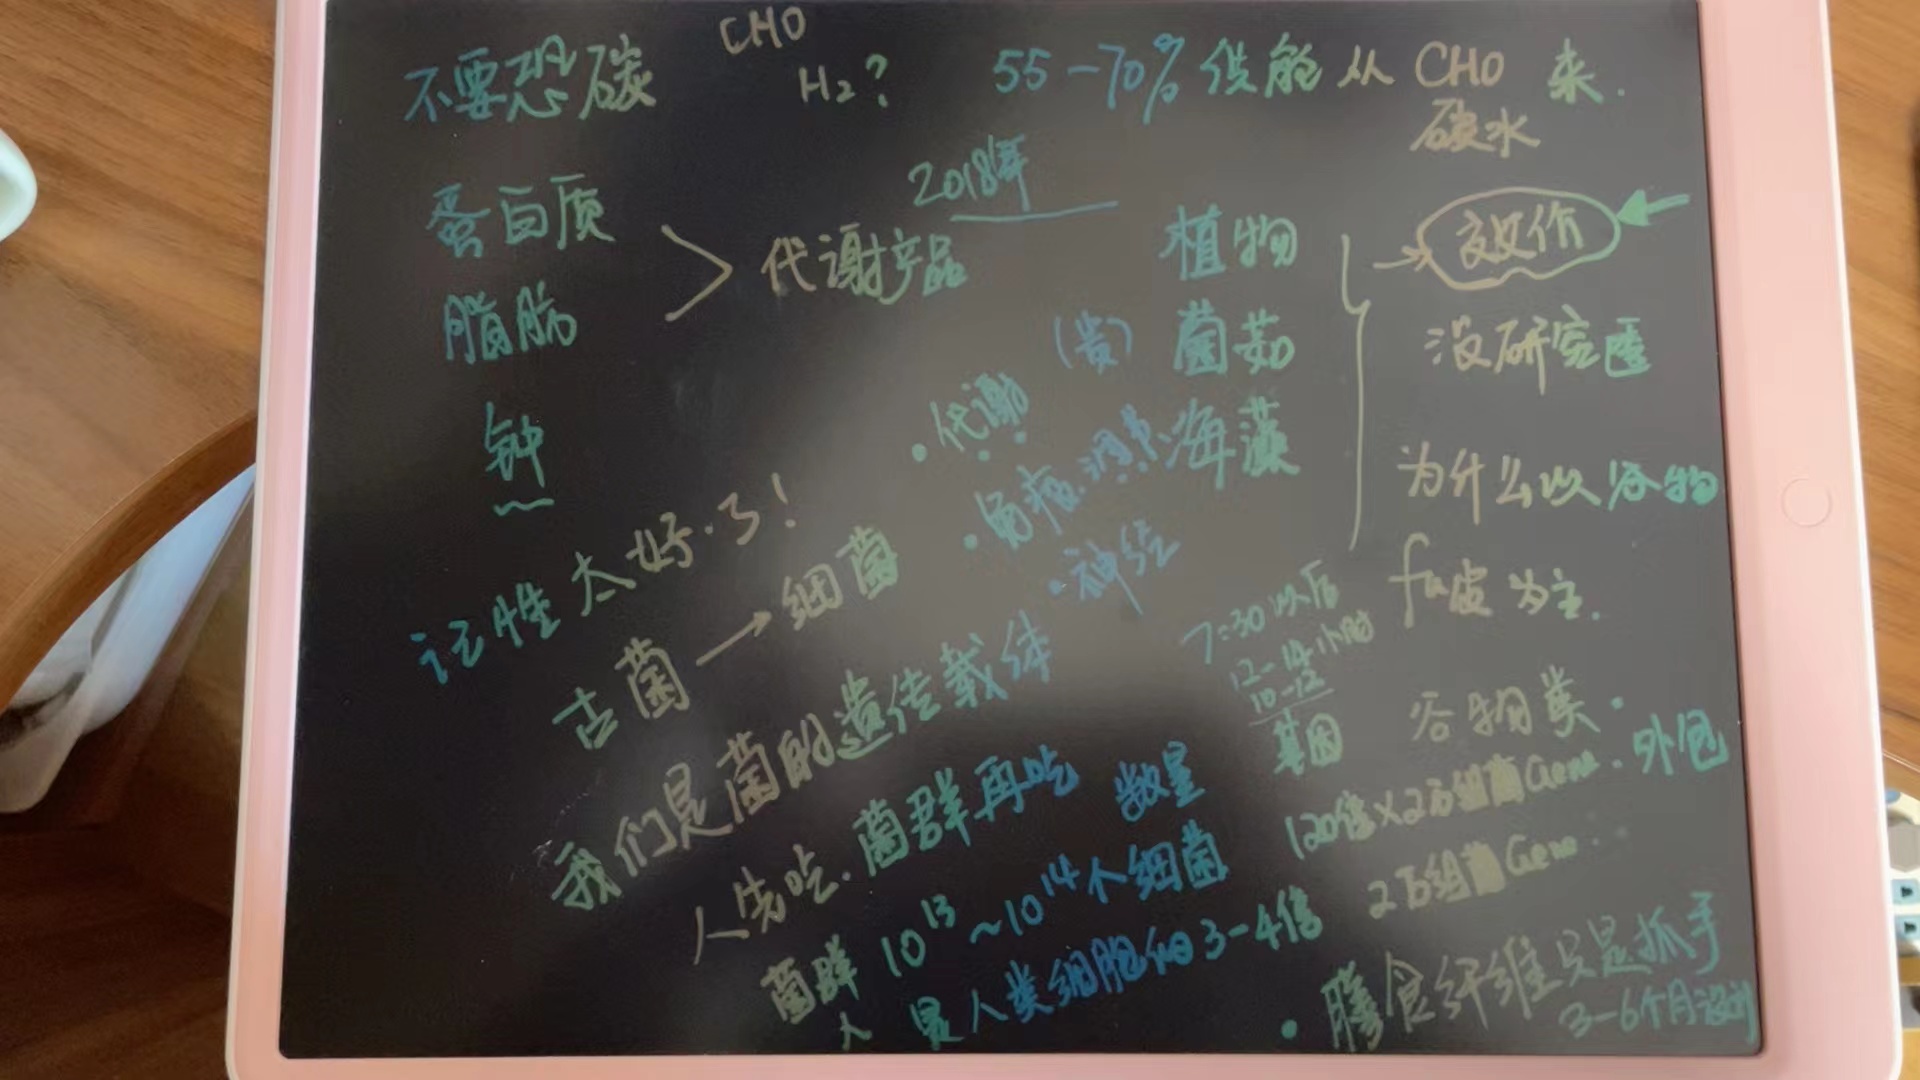 不要恐碳
CHO
H₂?
55-70% 供能从 CHO 来.
碳水
蛋白质
脂肪
代谢产品
2018年
植物
(贵) 菌菇
海藻
效价
没研究透
为什么以谷物
fu皮为主.
钟
记性太好了!
·代谢
·免疫调节
·神经
古菌→细菌
我们是菌的遗传载体
人先吃.菌群再吃
7:30以后
12-14小时
10-12
基因
谷物类·
数量
菌群 10¹³~10¹⁴个细菌
人 是人类细胞的3-4倍
120倍×2万组菌Gene.外包
2万组菌Gene..
·膳食纤维只是抓手
3-6个月